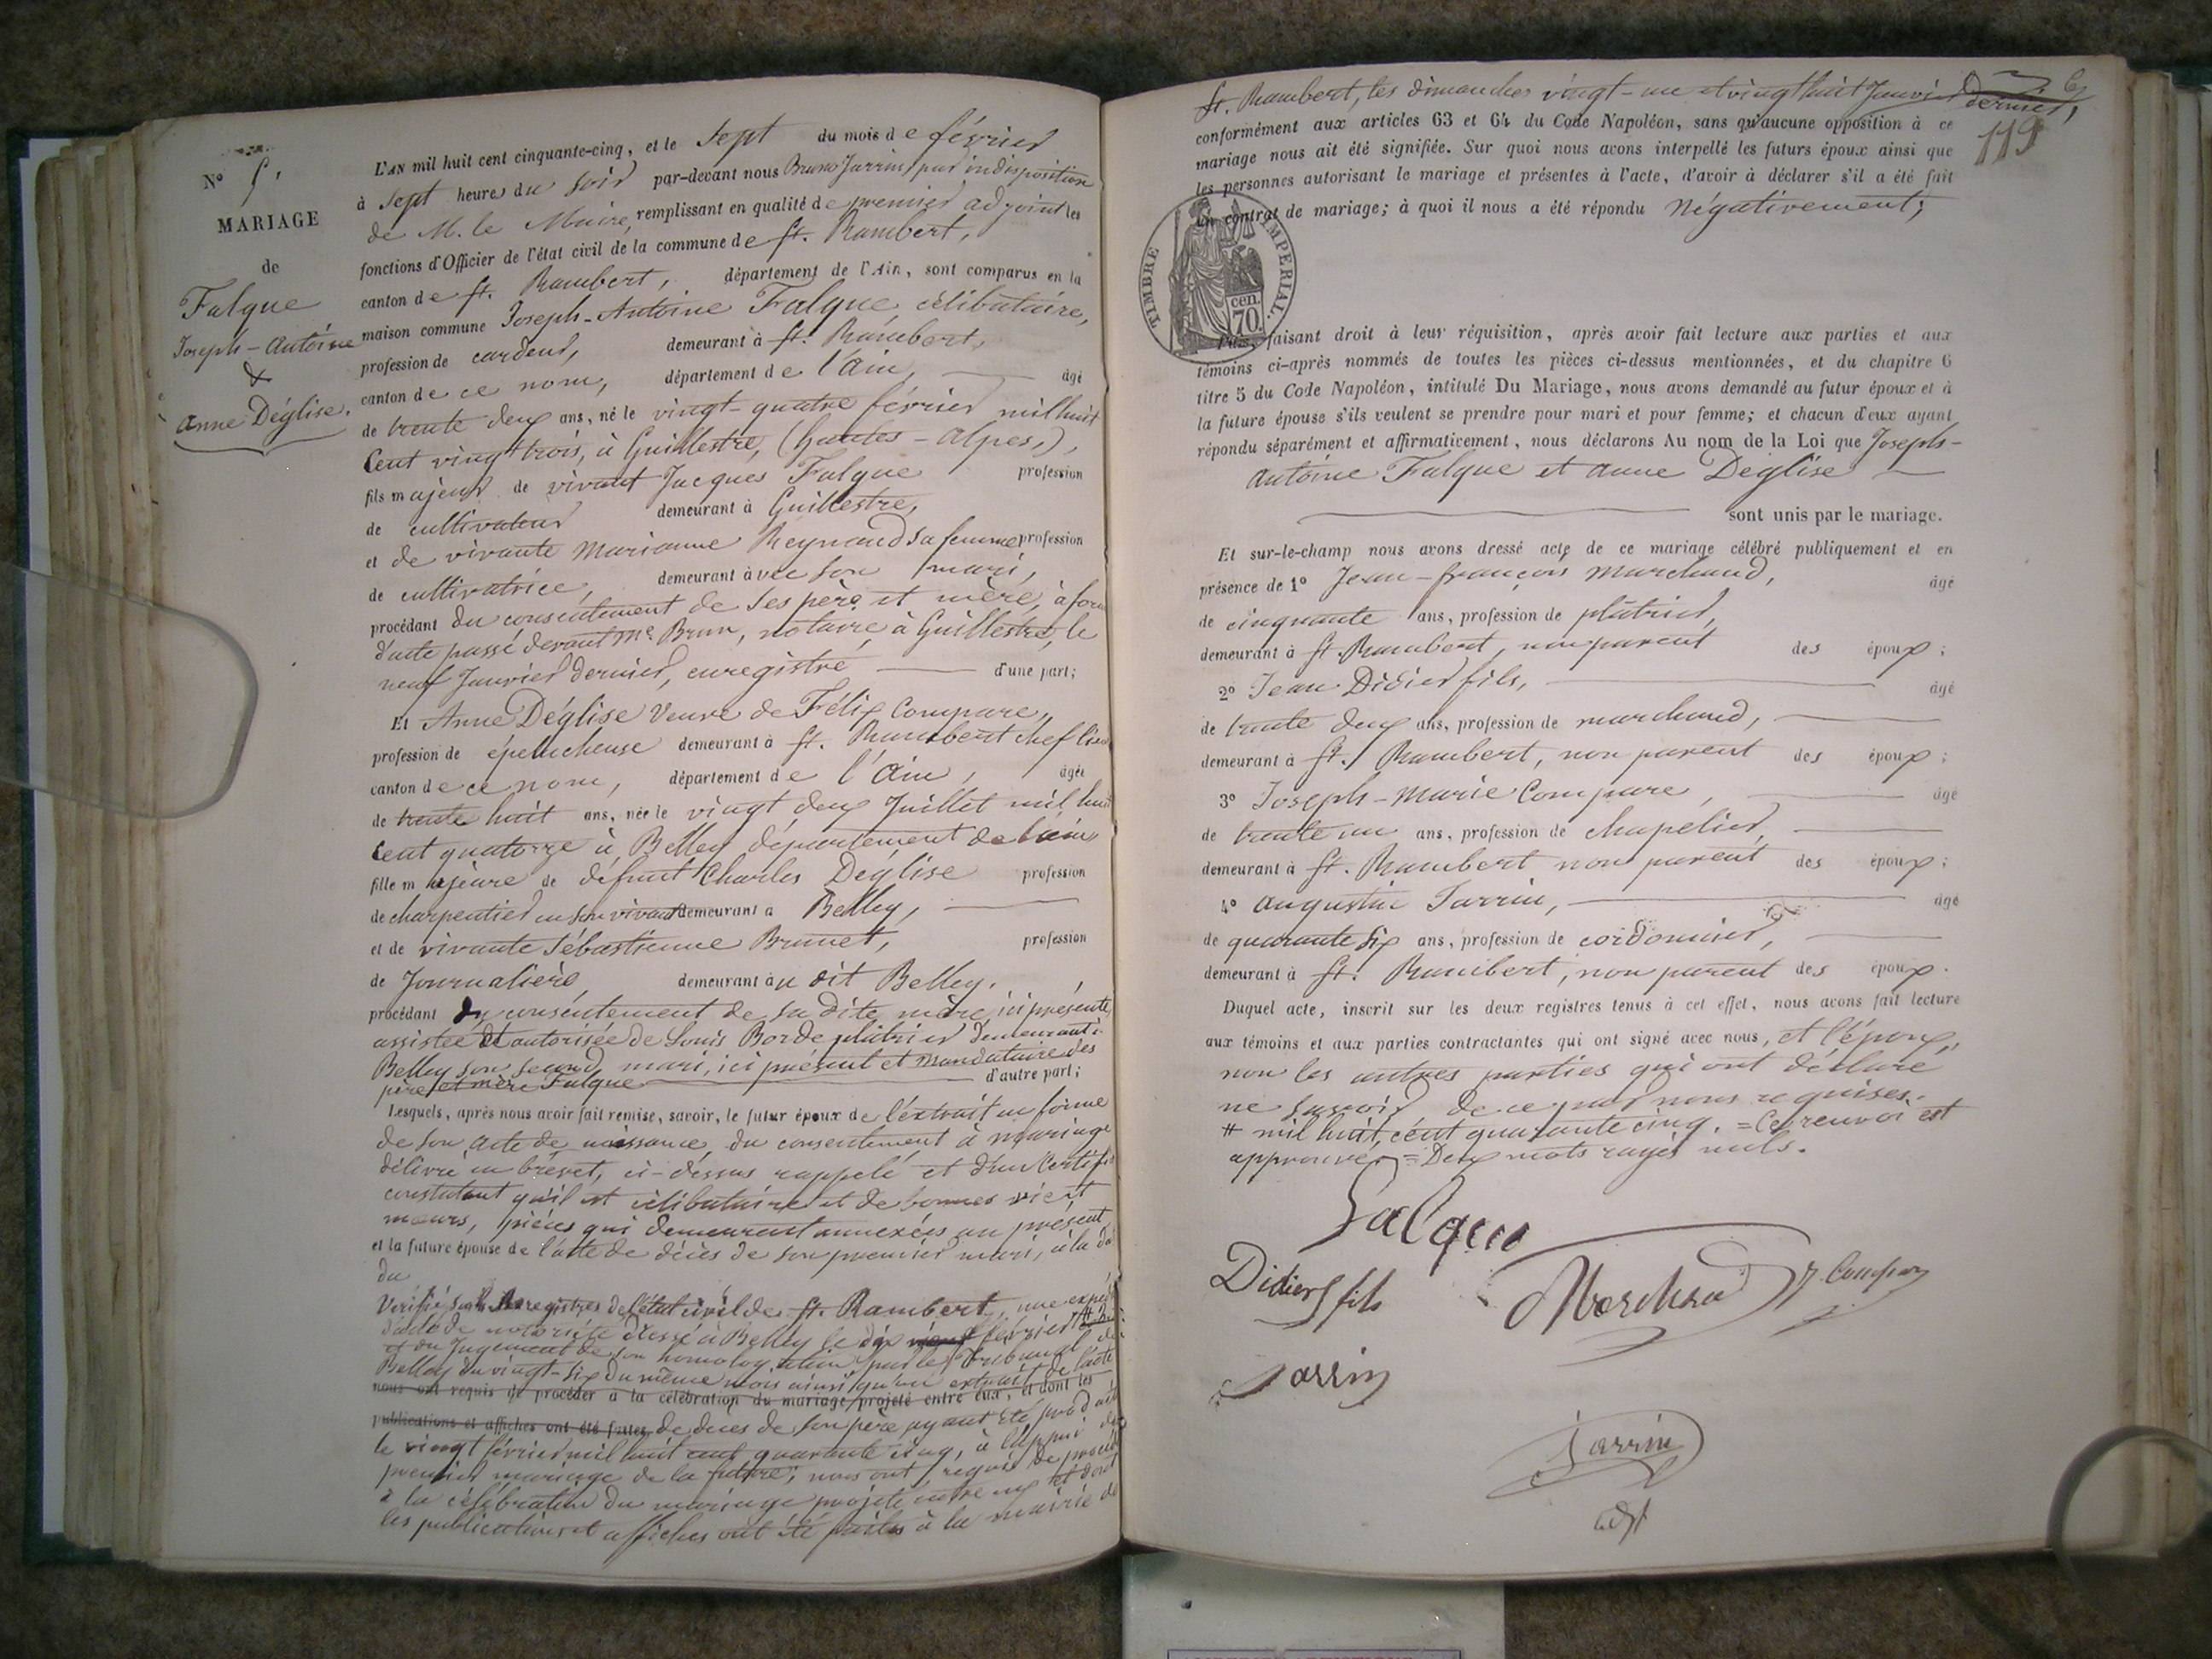 N° 5,
MARIAGE
de
Falque
Joseph-Antoine
&
Anne Déglise.
L'AN mil huit cent cinquante-cinq, et le Sept du mois de février
à Sept heures du soir par-devant nous Bruno Jarrin, par indisposition
de M. le Maire, remplissant en qualité de premier adjoint les
fonctions d'Officier de l'état civil de la commune de St. Rambert,
canton de St. Rambert, département de l'Ain, sont comparus en la
maison commune Joseph-Antoine Falque, célibataire,
profession de cardeur, demeurant à St. Rambert,
canton de ce nom, département de l'Ain, âgé
de trente deux ans, né le vingt-quatre février mil huit
Cent vingt trois, à Guillestre, (hautes-alpes,),
fils majeur de vivant Jacques Falque profession
de cultivateur demeurant à Guillestre,
et de vivante Marianne Reynaud sa femme profession
de cultivatrice, demeurant avec son mari,
procédant du consentement de ses père et mère, à form
d'acte passé devant Me Brun, notaire à Guillestre, le
neuf Janvier dernier, enregistré d'une part;
Et Anne Déglise Veuve de Félix Compare,
profession de éplucheuse demeurant à St. Rambert chef lieu
canton de ce nom, département de l'Ain, âgée
de trente huit ans, née le vingt deux Juillet mil huit
Cent quatorze à Belley département de l'ain
fille majeure de défunt Charles Déglise profession
de charpentier en son vivant demeurant à Belley,
et de vivante Sébastienne Brunet, profession
de Journalière, demeurant au dit Belley.
procédant du consentement de sa dite mère ici présente
assistée et autorisée de Louis Borde plâtrier demeurant à
Belley son second mari, ici présent et mandataire des
père et mère Falque d'autre part;
Lesquels, après nous avoir fait remise, savoir, le futur époux de l'extrait en forme
de son acte de naissance, du consentement à mariage
délivré en brevet, ci-dessus rappelé et d'un Certifi
constatant qu'il est célibataire et de bonnes vie et
mœurs, pièces qui demeurent annexées au présent
et la future épouse de l'acte de décès de son premier mari, à la da
du
Vérifié sur les registres de l'état civil de St. Rambert, une expé
d'acte de notoriété dressé à Belley le dix neuf février #
et du Jugement de son homologation par le Tribunal de
Belley du vingt-six du même mois ainsi qu'un extrait de l'acte
nous ont requis de procéder à la célébration du mariage projeté entre eux, et dont les
publications et affiches ont été faites de décès de son père ayant été produit
le vingt février mil huit cent quarante cinq, à l'appui du
premier mariage de la future; nous ont requis de procéd
à la célébration du mariage projeté entre eux et dont
les publications et affiches ont été faites à la mairie de
6
119
St. Rambert, les dimanches vingt-un et vingt huit Janvier dernier,
conformément aux articles 63 et 64 du Code Napoléon, sans qu'aucune opposition à ce
mariage nous ait été signifiée. Sur quoi nous avons interpellé les futurs époux ainsi que
les personnes autorisant le mariage et présentes à l'acte, d'avoir à déclarer s'il a été fait
un contrat de mariage; à quoi il nous a été répondu Négativement;
TIMBRE IMPERIAL.
cen.
70.
Puis, faisant droit à leur réquisition, après avoir fait lecture aux parties et aux
témoins ci-après nommés de toutes les pièces ci-dessus mentionnées, et du chapitre 6
titre 5 du Code Napoléon, intitulé Du Mariage, nous avons demandé au futur époux et à
la future épouse s'ils veulent se prendre pour mari et pour femme; et chacun d'eux ayant
répondu séparément et affirmativement, nous déclarons Au nom de la Loi que Joseph-
Antoine Falque et Anne Déglise
sont unis par le mariage.
Et sur-le-champ nous avons dressé acte de ce mariage célébré publiquement et en
présence de 1° Jean-François Marchand, âgé
de cinquante ans, profession de plâtrier,
demeurant à St. Rambert, non parent des époux;
2° Jean Didier fils, âgé
de trente deux ans, profession de marchand,
demeurant à St. Rambert, non parent des époux;
3° Joseph-Marie Compare, âgé
de trente un ans, profession de chapelier,
demeurant à St. Rambert non parent des époux;
4° Augustin Jarrin, âgé
de quarante six ans, profession de cordonnier,
demeurant à St. Rambert, non parent des époux.
Duquel acte, inscrit sur les deux registres tenus à cet effet, nous avons fait lecture
aux témoins et aux parties contractantes qui ont signé avec nous, et l'époux,
non les autres parties qui ont déclaré
ne savoir, de ce par nous requises.
# mil huit cent quarante cinq. = Ce renvoi est
approuvé. = Deux mots rayés nuls.
Falque
Didier fils Marchand J. Compare
Jarrin
Jarrin
adjt